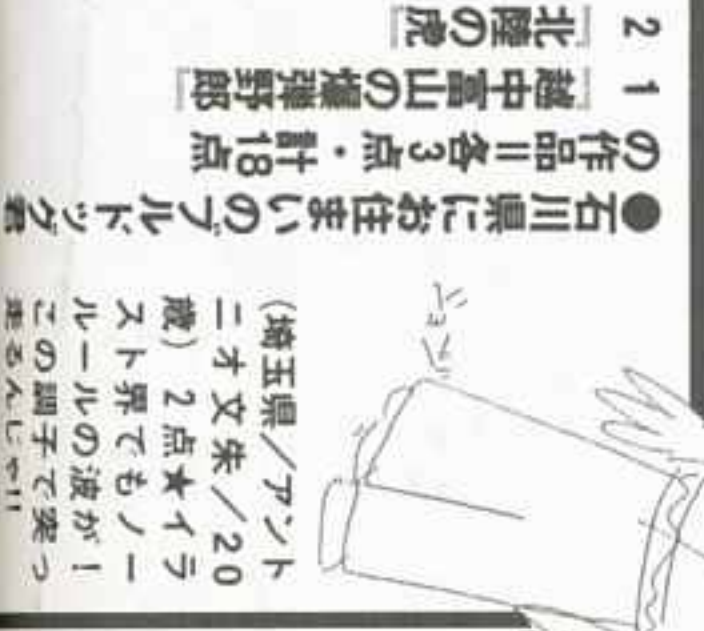 ●石川県にお住まいのブルドッグ君
の作品=各3点・計18点
1『越中富山の爆弾野郎』
2『北陸の虎』
(埼玉県/アント
ニオ文朱/20
歳) 2点★イラ
スト界でもノー
ルールの波が!
この調子で突っ
走るんじゃ!!